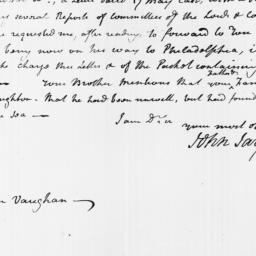 several Reports of Committees of the Lords & Co
he requested me, after reading, to forward to you
now on his way to Philadelphia, i
the charge this Letter & of the Packet containing
your Brother mentions that your Father
ughton. that he had been unwell, but had found
Sea —
I am Dr Sir
your most o
John Jay
n Vaughan —